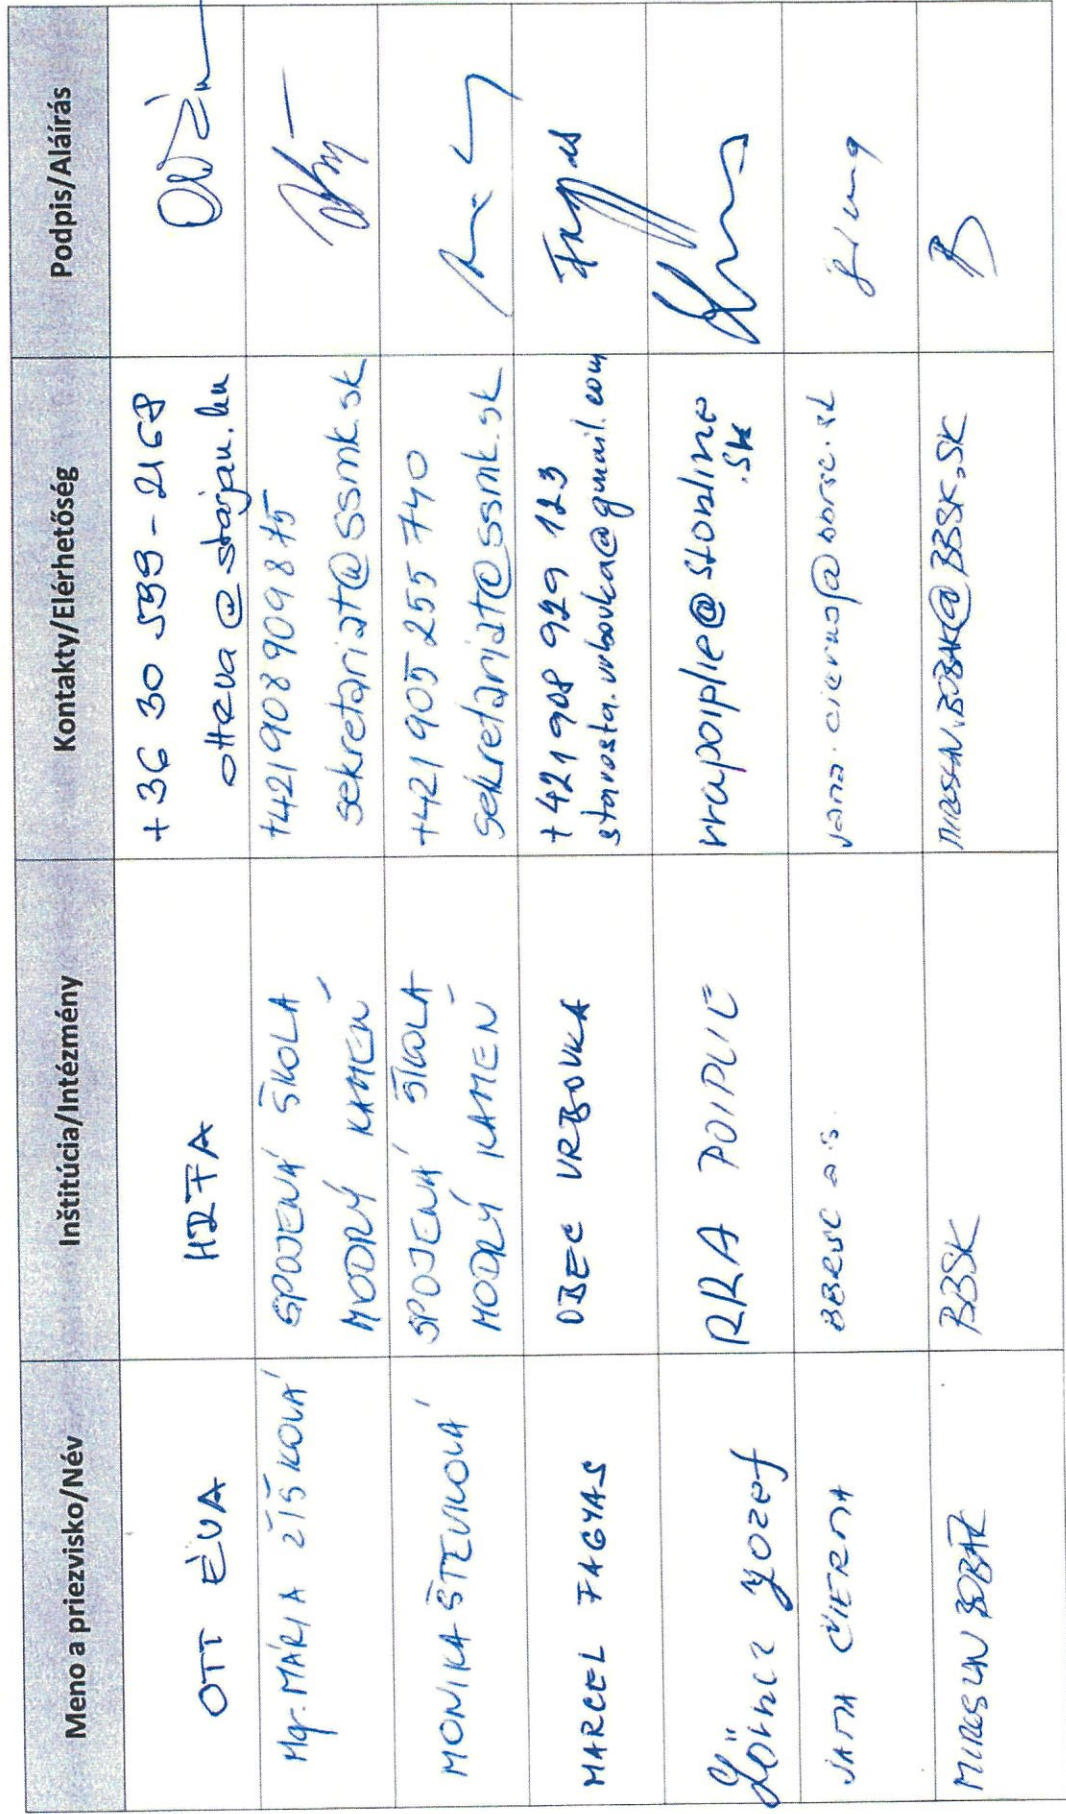 Meno a priezvisko/Név Inštitúcia/Intézmény Kontakty/Elérhetőség Podpis/Aláírás
OTT ÉVA HRFA +36 30 539-2168
otteva@starjan.hu
Mgr. MÁRIA ŽIŠKOVÁ SPOJENÁ ŠKOLA +421908909875
MODRÝ KAMEŇ sekretariat@ssmk.sk
MONIKA ŠTEVKOVÁ SPOJENÁ ŠKOLA +421905255740
MODRÝ KAMEŇ sekretariat@ssmk.sk
MARCEL FAGYAS OBEC VRBOVKA +421 908 929 123 Fagyas
starosta.vrbovka@gmail.com
Lörincz Jozef RRA POIPLIE rrapoiplie@stonline
.sk
JANA ČIERNA BBRSC a.s. jana.cierna@bbrsc.sk
MIROSLAV BOBÁK BBSK MIROSLAV.BOBAK@BBSK.SK